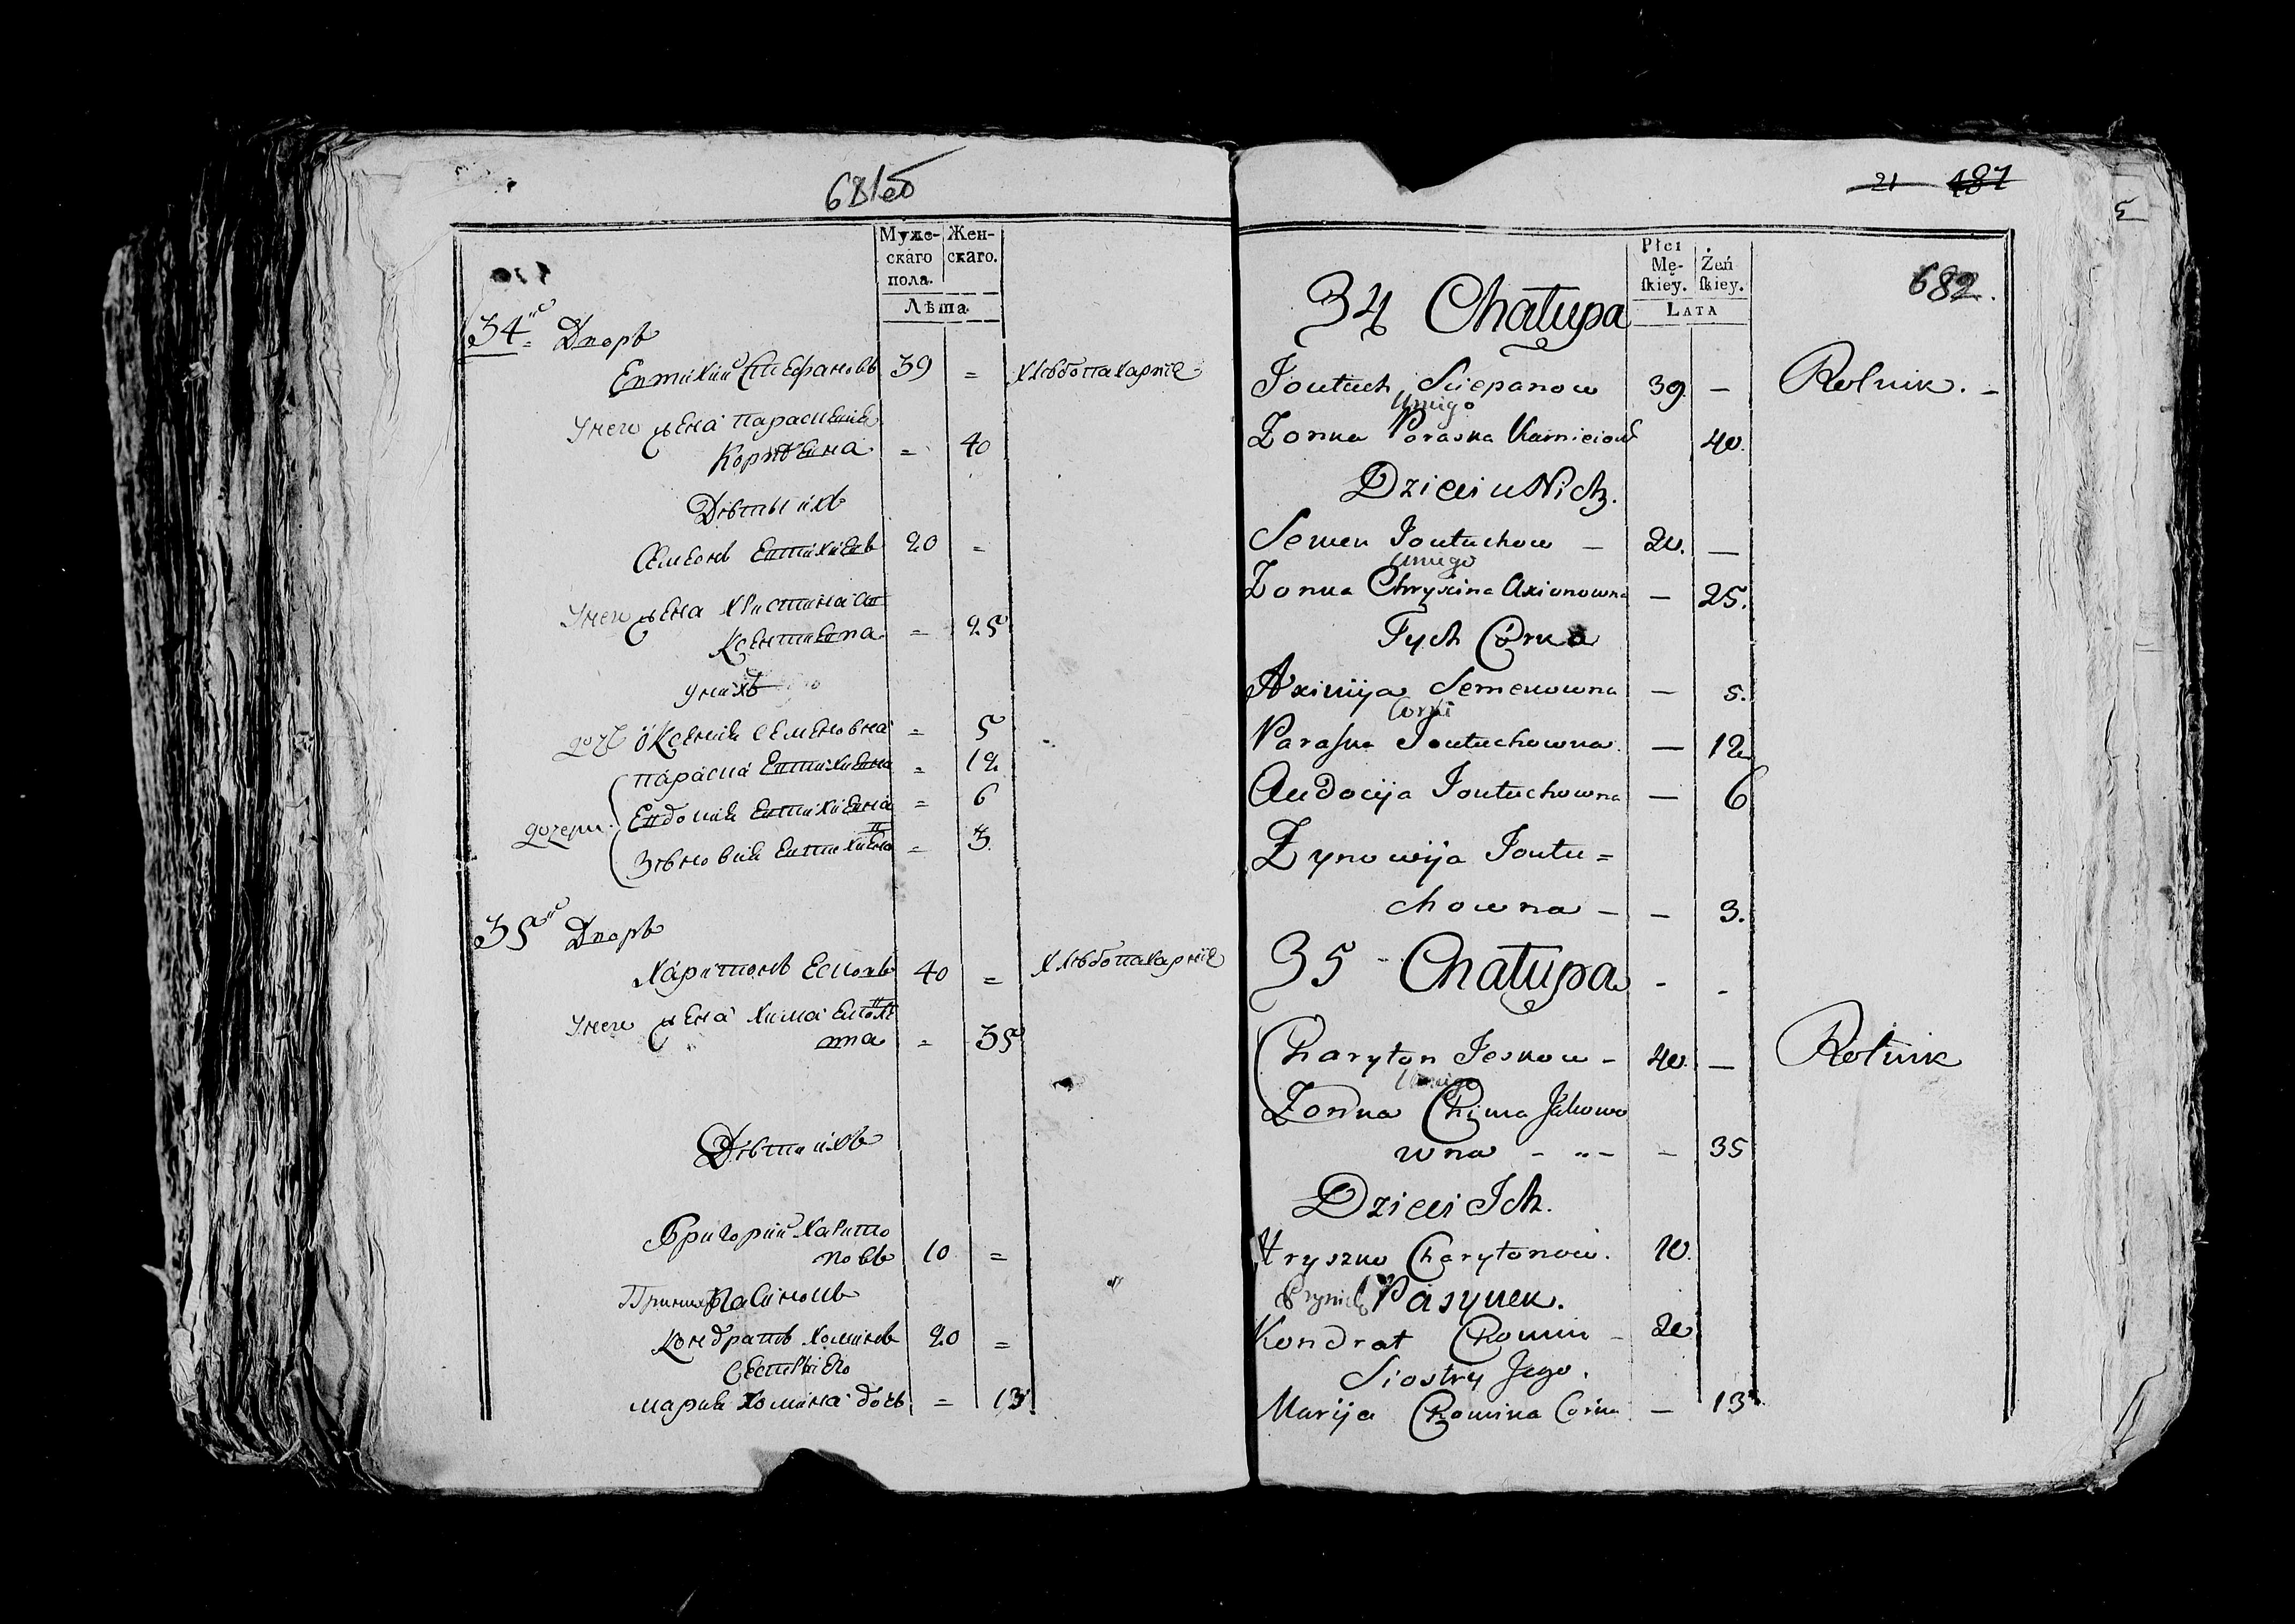 681об
Мужескаго пола.
Женскаго.
Лѣта
34й Дворъ
Евтихий Стефановъ 39 = хлѣбопахарне
У него жена Параскевия
Корнѣевна = 40
Дѣты ихъ
Семенъ Евтихиевъ 20 =
У него жена Христина Ав
ксентиевна = 25
У нихъ
дочь Оксения Семеновна = 5
Параска Евтихиевна = 12
дочери: Евдокия Евтихиевна = 6
Зѣновия Евтихиевна = 3.
35й Дворъ
Харитонъ Есковъ 40 = хлѣбопахарне
У него жена Хима
вна = 35
Дѣти ихъ
Григорий Харито
новъ 10 =
Принятъ Пасинокъ
Кондратъ Хоминъ 20 =
Сестра Его
Мария Хомина дочь = 13
21 487
682.
Płci Męſkiey.
Żeńſkiey.
LATA
34 Chałupa
Jowtuch Sciepanow 39. — Rolnik. –
Unego
Żonka Poraska Karnieiow 40.
Dzieci u Nich.
Semen Jowtuchow — 20. —
Unego
Żonka Chryscina Axionowna — 25.
Tych Córka
Axinija Semenowna — 5.
Corki
Paraſka Jowtuchowna. — 12
Audocija Jowtuchowna — 6
Zynowija Jowtu=
chowna – – 3.
35 – Chałupa - -
Charyton Jeskow – 40. — Rolnik
Unego
Żonka Chima Jakowo
wna – „ – – 35
Dzieci Ich.
Hryszko Charytonow. 10.
Prynięty Pasynek.
Kondrat Chomin – 20
Siostry Jego.
Marija Chomina Córka — 13.